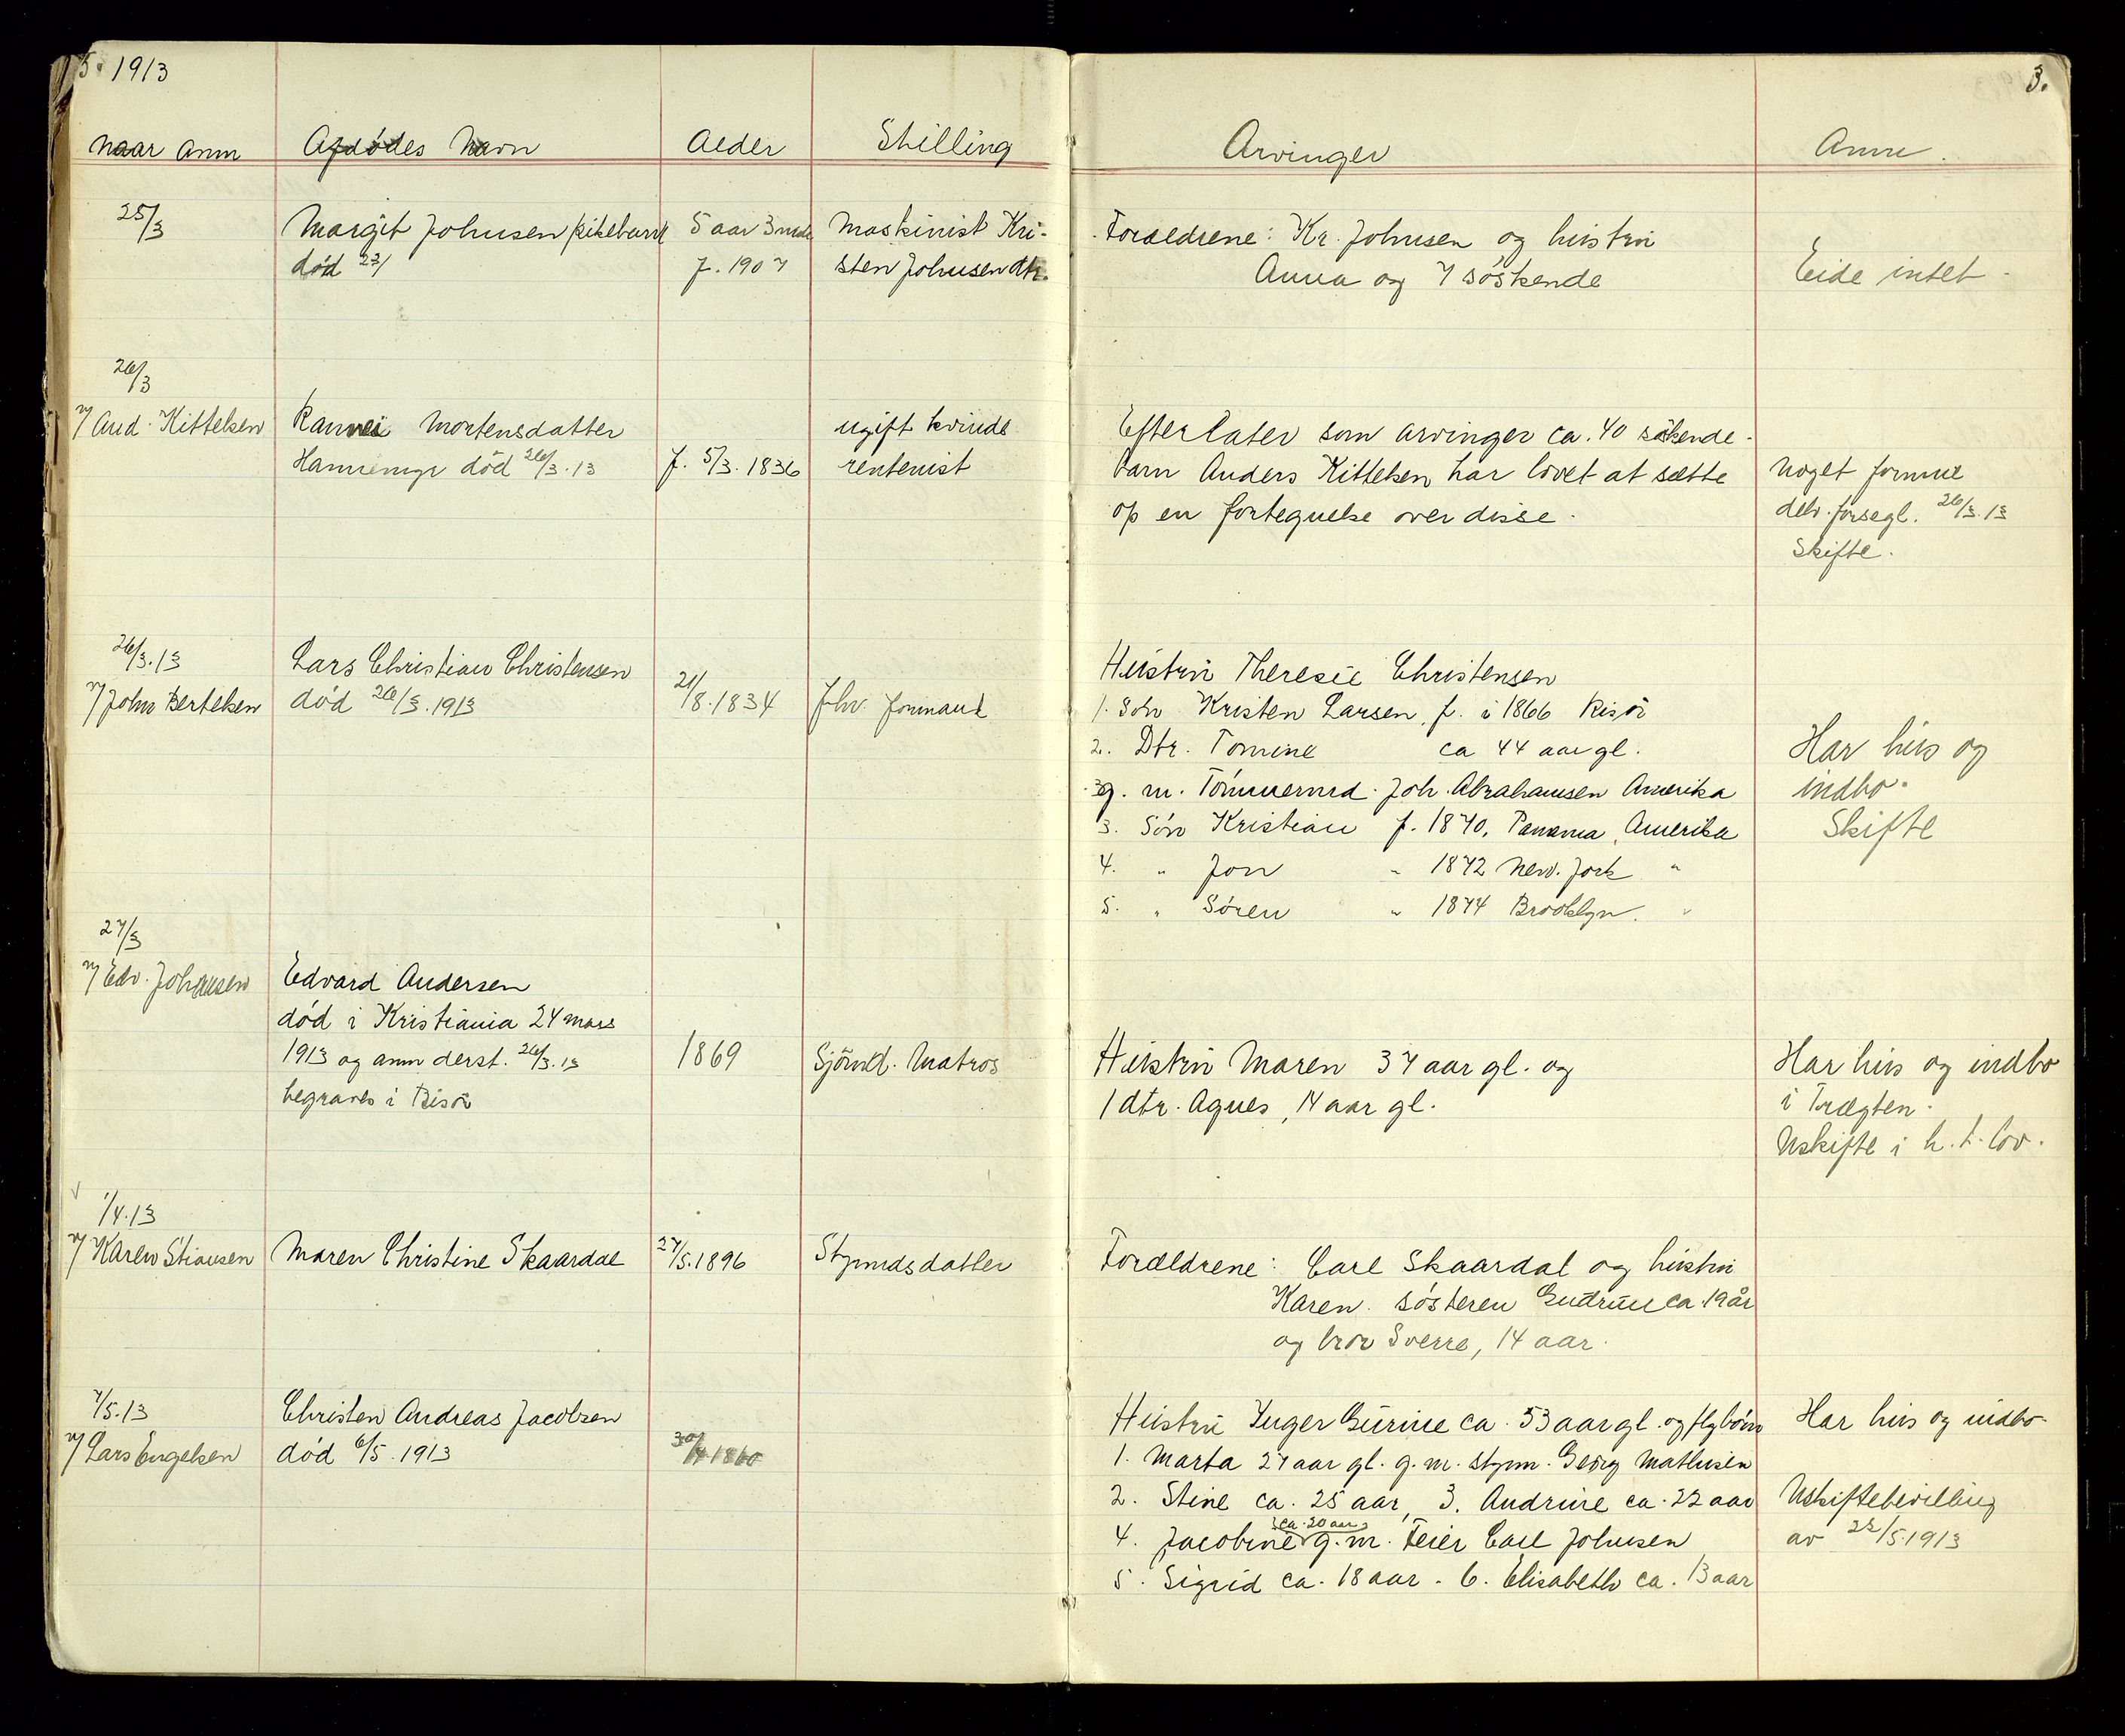 1913
3.
Naar anm Afdødes Navn Alder Stilling Arvinger Anm.
25/3 Margit Johnsen pikebarn 5 aar 3 mdr Maskinist Kri-
død 23/ f. 1907 sten Johnsen dtr.
Forældrene: Kr. Johnsen og hustru
Anna og 7 søskende
Eide intet
26/3
v/ And. Kittelsen Rannei Mortensdatter ugift kvinde
død 26/3.13 f. 5/3.1836 rentenist
Efterlater som arvinger ca. 40 søskende-
barn Anders Kittelsen har lovet at sætte
op en fortegnelse over disse.
Noget formue
delv. forsegl. 26/3.13
Skifte.
26/3.13 Lars Christian Christensen
v/ John Bertelsen død 26/3.1913 21/8.1834 fhv. formand
Hustru Theresie Christensen
1. Søn Kristen Larsen, f. i 1866 Risør
2. Dtr. Tomine ca 44 aar gl.
g. m. Tømmermd. Joh. Abrahamsen Amerika
3. Søn Kristian f. 1870, Panama, Amerika
4. " Jon " 1872 New. Jork "
5. " Søren " 1874 Brooklyn. "
Har hus og
indbo.
Skifte
27/3
v/ Edv. Johansen Edvard Andersen
død i Kristiania 24 mars
1913 og anm derst. 26/3.13 1869 Sjømd. Matros
begraves i Risør
Hustru Maren 37 aar gl. og
1 dtr. Agnes, 14 aar gl.
Har hus og indbo
i Trægten.
Uskifte i h. t. lov.
1/4.13
v/ Karen Stiansen Maren Christine Skaardal 27/5.1896 Styrmdsdatter
Forældrene: Carl Skaardal og hustru
Karen. søsteren Gudrun ca. 19 år
og bror Sverre, 14 aar.
7/5.13 Christen Andreas Jacobsen
v/ Lars Engelsen død 6/5.1913 30/4 1860
Hustru Inger Gurine ca. 53 aar gl. og flg børn
1. Marta 27 aar gl. g. m. styrm. Georg Mathisen
2. Stine ca. 25 aar, 3. Andrine ca. 22 aar
ca. 20 aar
4. Jacobine g. m. Feier Carl Johnsen
5. Sigrid ca. 18 aar. 6. Elisabeth ca. 13 aar
Har hus og indbo.
Uskiftebevilling
av 22/5.1913